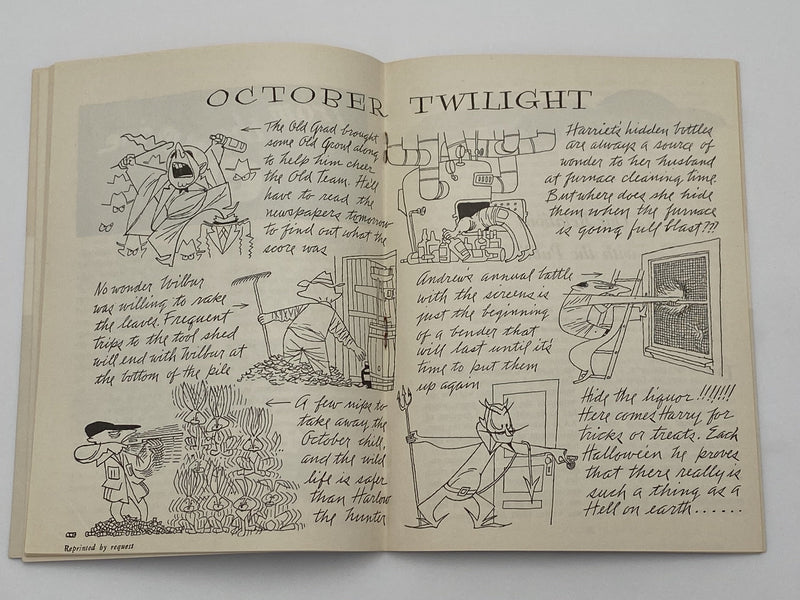 OCTOBER TWILIGHT
The Old Grad brought
some Old Grout along
to help him cheer
the Old Team. He'll
have to read the
newspapers tomorrow
to find out what the
score was
No wonder Wilbur
was willing to rake
the leaves. Frequent
trips to the tool shed
will end with Wilbur at
the bottom of the pile
A few nips to
take away the
October chill,
and the wild
life is safer
than Harlow
the hunter
Reprinted by request
Harriet's hidden bottles
are always a source of
wonder to her husband
at furnace cleaning time.
But where does she hide
them when the furnace
is going full blast???
Andrew's annual battle
with the screens is
just the beginning
of a bender that
will last until it's
time to put them
up again
Hide the liquor !!!!!!!
Here comes Harry for
tricks or treats. Each
Halloween he proves
that there really is
such a thing as a
Hell on earth......